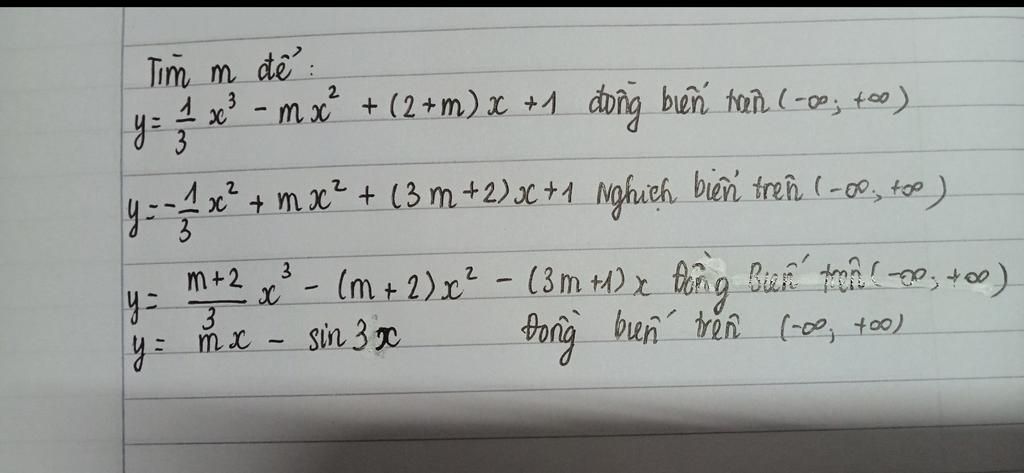 Tìm m để:
y = 1/3 x³ - mx² + (2+m)x + 1 đồng biến trên (-∞; +∞)
y = -1/3 x² + mx² + (3m+2)x + 1 Nghịch biến trên (-∞; +∞)
y = (m+2)/3 x³ - (m+2)x² - (3m+1)x Đồng Biến trên (-∞; +∞)
y = mx - sin 3x Đồng biến trên (-∞; +∞)